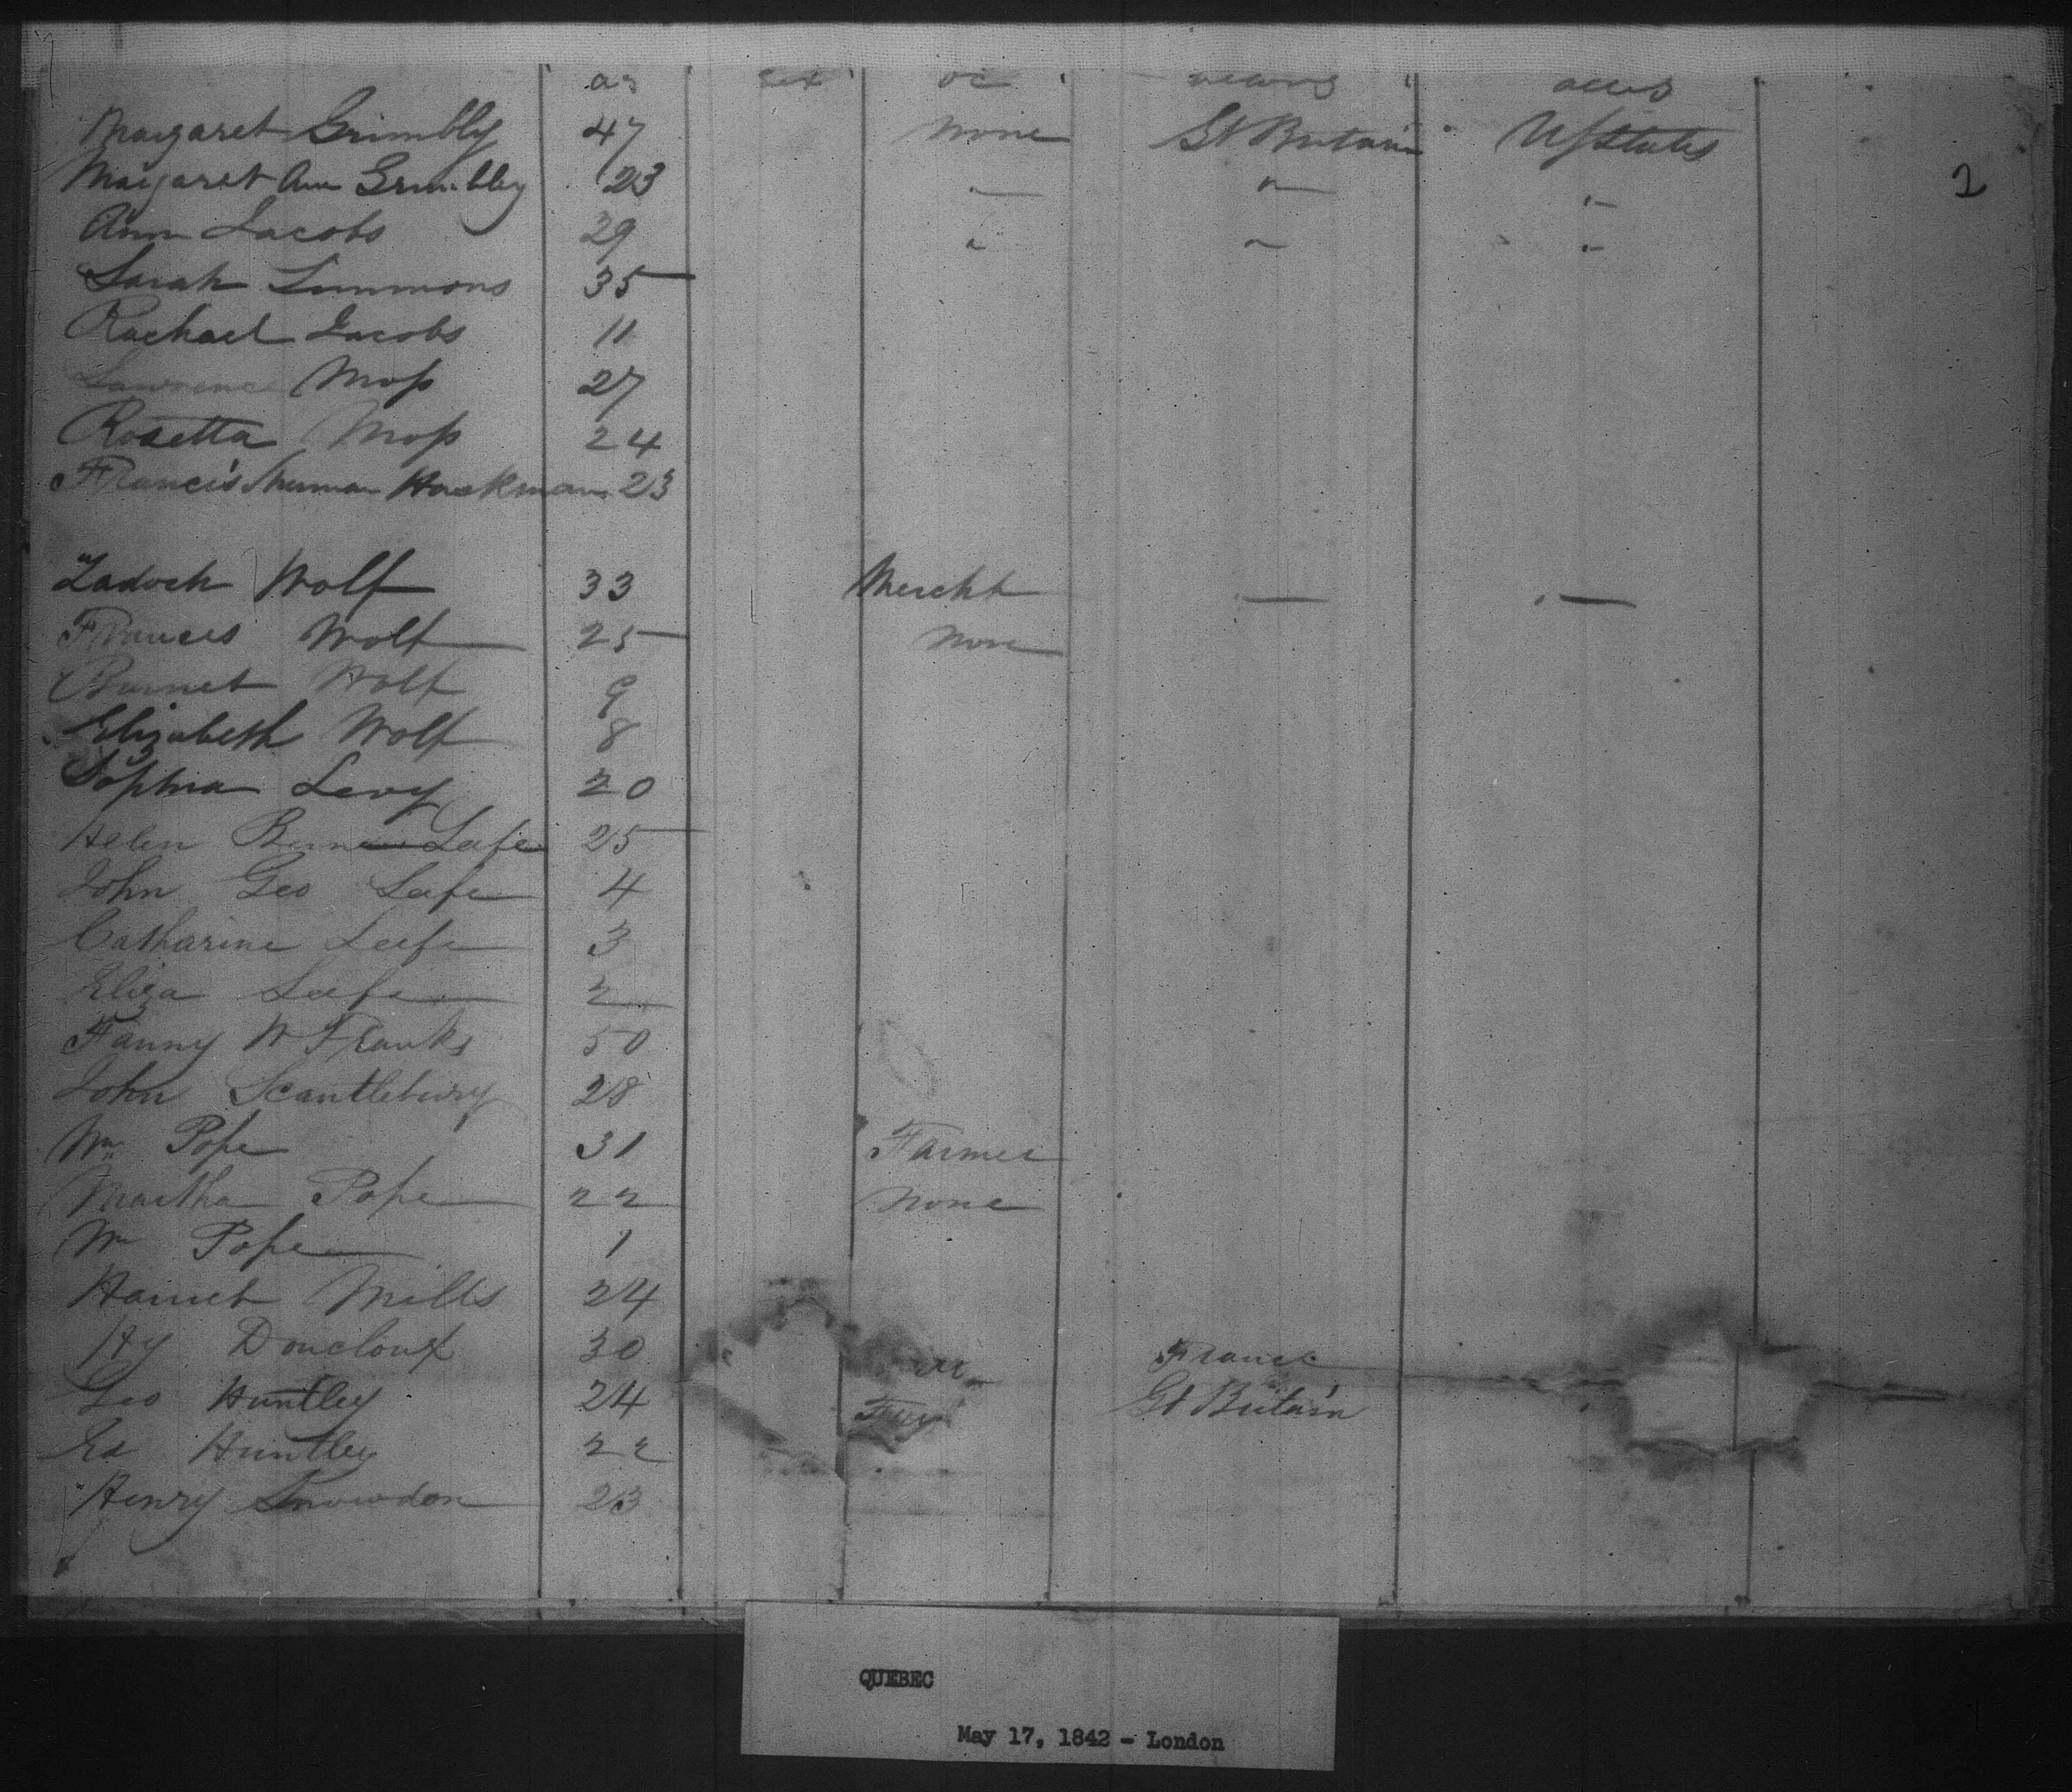 Margaret Grimbly 47 none Gt Britain U States
Margaret Ann Grimbley 23 " " "
2
Ann Jacobs 29 " " "
Sarah Simmons 35
Rachael Jacobs 11
Lawrence Moss 27
Rosetta Moss 24
Francis Hackman 23
Zadock Wolf 33 Mercht — —
Frances Wolf 25 None
Barnet Wolf 9
Elizabeth Wolf 8
Sophia Levy 20
Helen Leefe 25
John Geo Leefe 4
Catharine Leefe 3
Eliza Leefe 2
Fanny W Franks 50
John Scantlebury 28
Wm Pope 31 Farmer
Martha Pope 22 none
Wm Pope 1
Harriet Mills 24
Hy Doucloux 30 France
Geo Huntley 24 Gt Britain
Ed Huntley 22
Henry Snowdon 23
QUEBEC
May 17, 1842 - London